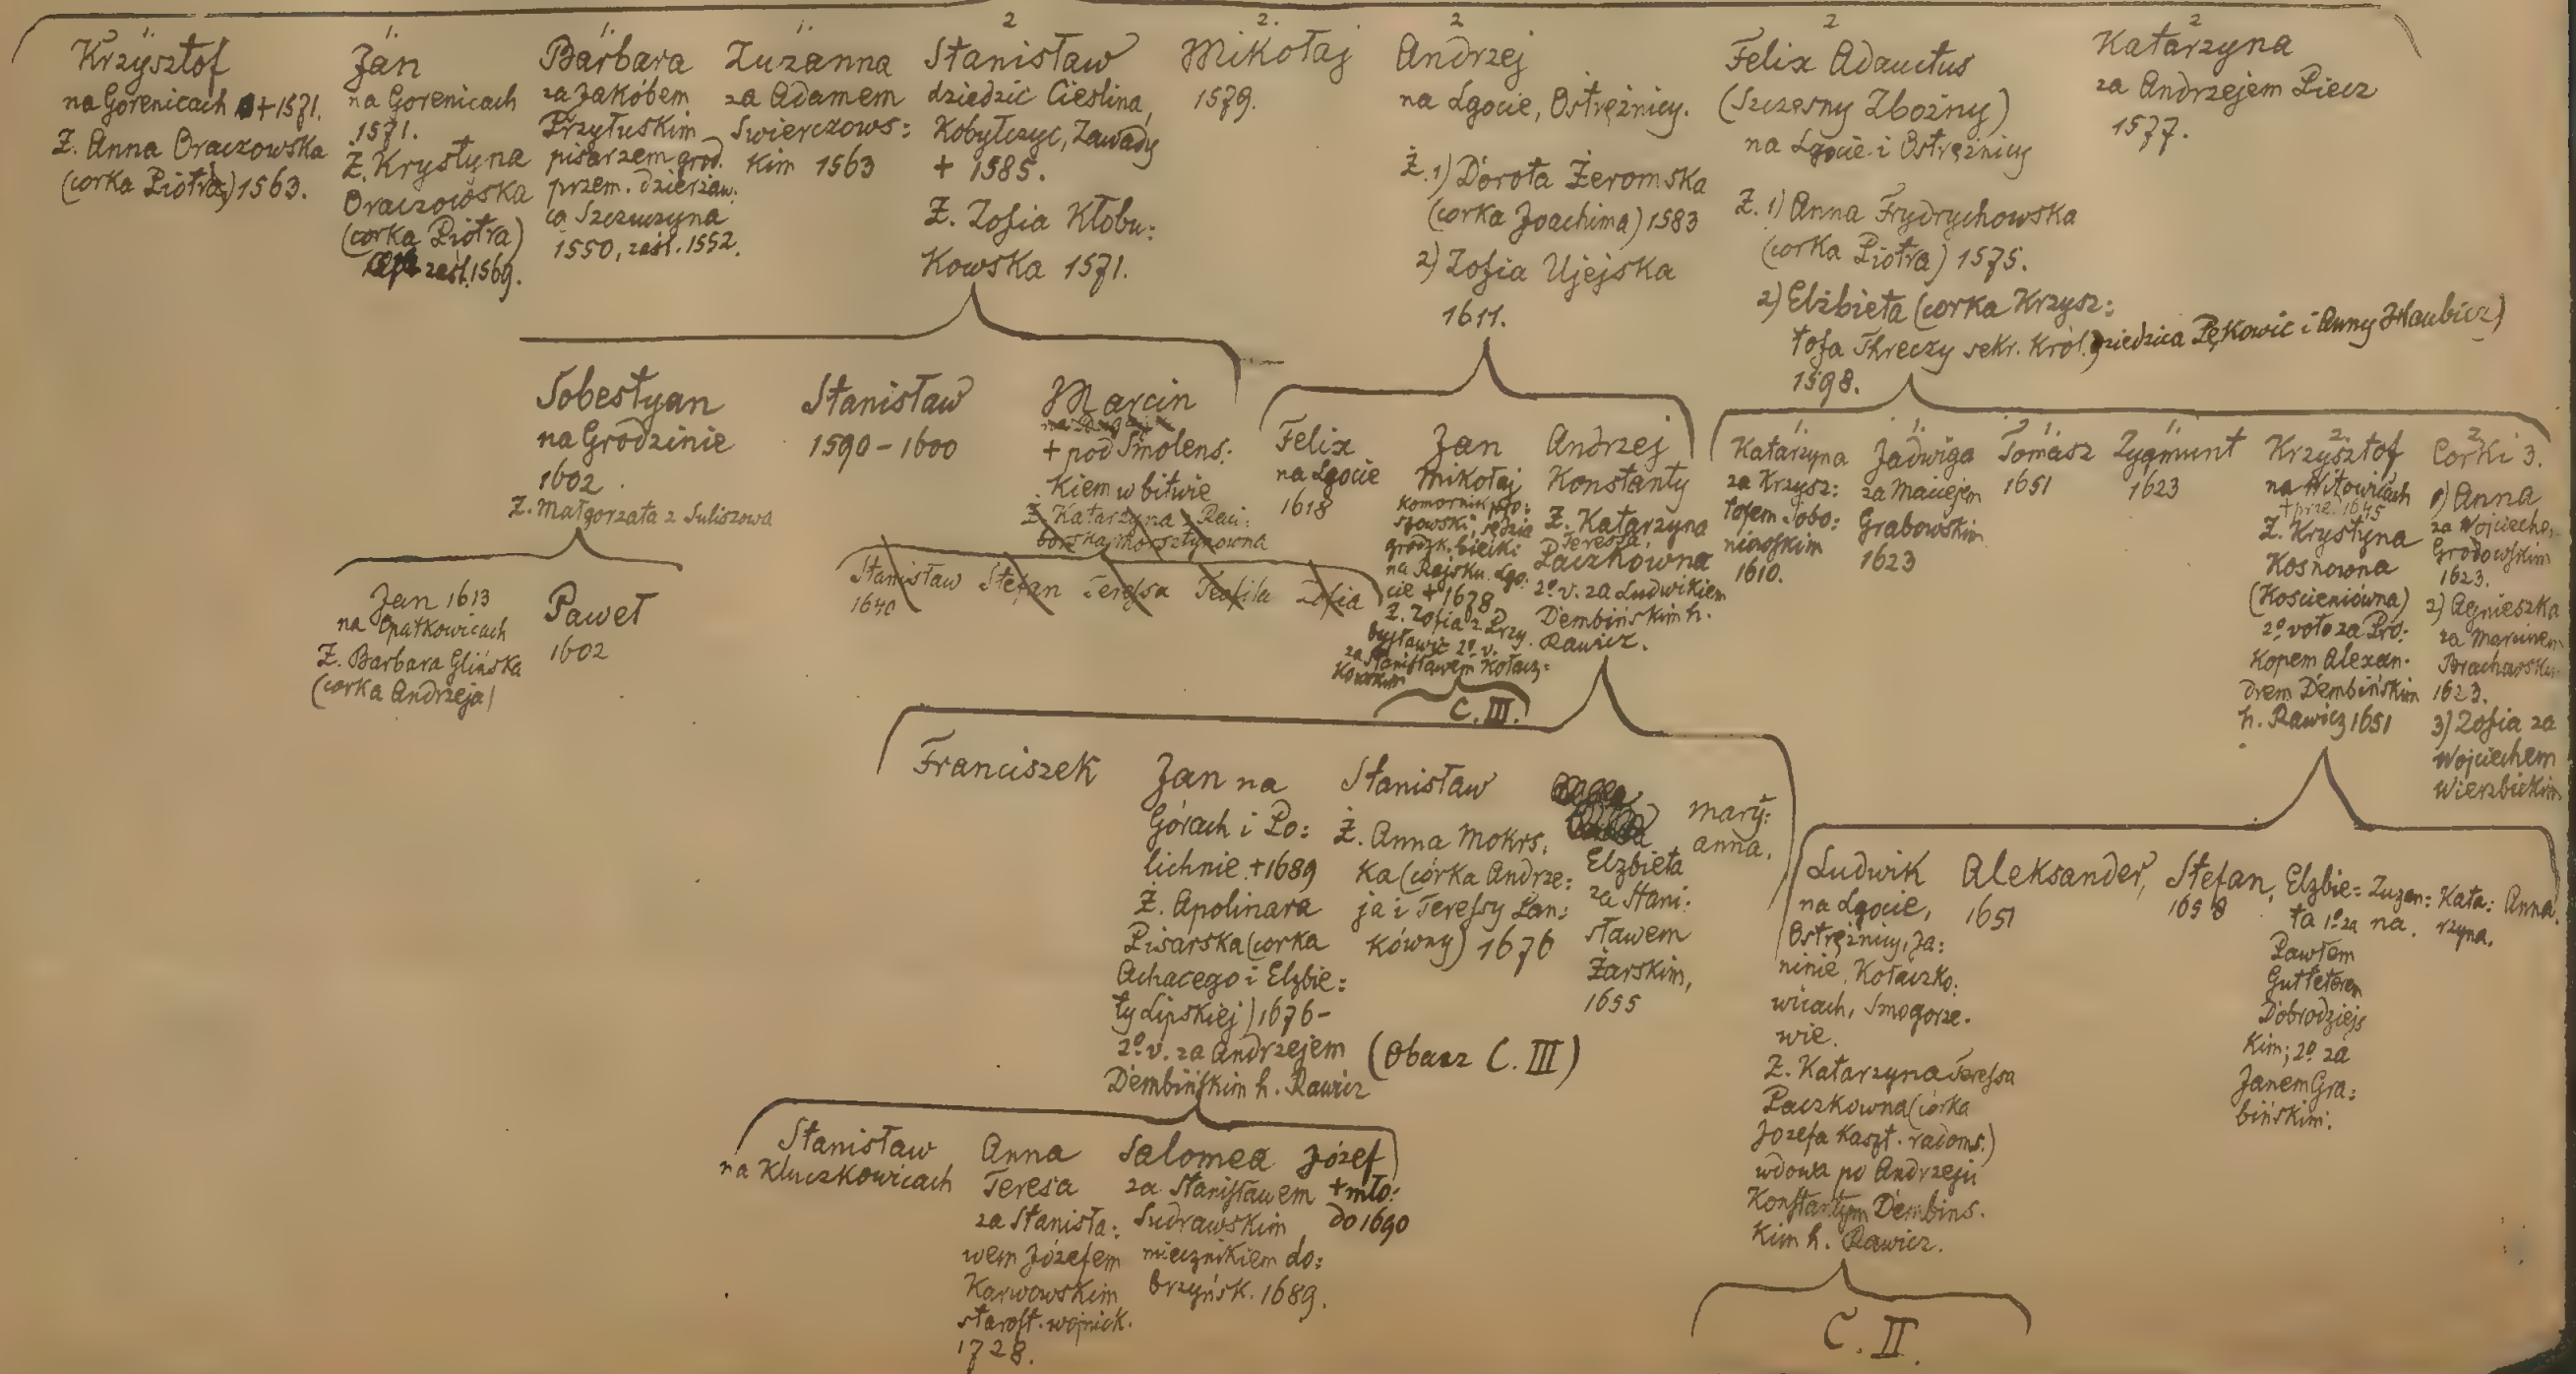 Krzysztof
na Gorenicach +1571.
Ż. Anna Oraczowska
(corka Piotra) 1563.
Jan
na Gorenicach
1571.
Ż. Krystyna
Oraczowska
(corka Piotra)
zasł. 1569.
Barbara
za Jakóbem
Przyłuskim
pisarzem grod.
przem. dzierżaw:
cą Szczuczyna
1550, zasł. 1552.
Zuzanna
za Adamem
Swierczows:
kim 1563
2
Stanisław
dziedzic Cieslina,
Kobylczyc, Zawady
+ 1585.
Ż. Zofia Kłobu:
kowska 1571.
2.
Mikołaj
1579.
2
Andrzej
na Lgocie, Ostrężnicy.
Ż. 1) Dorota Żeromska
(corka Joachima) 1583
2) Zofia Ujejska
1611.
2
Felix Adauctus
(Szczesny Zbożny)
na Lgocie i Ostrężnicy
Ż. 1) Anna Frydrychowska
(corka Piotra) 1575.
2) Elżbieta (corka Krzysz:
tofa Threczy sekr. Król. dziedzica Pękowic i Anny Haubicz)
1598.
2
Katarzyna
za Andrzejem Piecz
1577.
Sobestyan
na Grodzinie
1602.
Ż. Małgorzata z Suliszowa
Stanisław
1590 - 1600
Marcin
+ pod Smolens:
kiem w bitwie
Ż. Katarzyna z Raci:
borska Morsztynowna
Felix
na Lgocie
1618
Jan
Mikołaj
Komornik
szowski, sędzia
grodzk. bieiki
na Rajsku. Lgo:
cie + 1678
Ż. Zofia z Przy
bysławic 2º v.
za Stanisławem Kołacz:
kowskim
C. III.
Andrzej
Konstanty
Ż. Katarzyna
Teressa,
Paczkowna
2º. v. za Ludwikiem
Dembińskim h.
Rawicz.
Katarzyna
za Krzysz:
tofem Sobo:
niowskim
1610.
Jadwiga
za Maciejem
Grabowskim
1623
Tomasz
1651
Zygmunt
1623
2.
Krzysztof
na Witowicach
+ prze. 1645
Ż. Krystyna
Kosnowna
(Koscieniówna)
2º voto za Pro:
kopem Alexan.
drem Dembińskim
h. Rawicz 1651
2
Corki 3.
1) Anna
za Wojciechem
Grodowskim
1623.
2) Agnieszka
za Marcinem
1623.
3) Zofia za
Wojciechem
Wierzbickim
Jan 1613
na Opatkowicach
Ż. Barbara Glińska
(corka Andrzeja)
Paweł
1602
Stanisław
1640
Stefan
Teressa
Teofila
Zofia
Franciszek
Jan na
Górach i Po:
lichnie +1689
Ż. Apolinara
Pisarska (corka
Achacego i Elzbie:
ty Lipskiej) 1676-
2º. v. za Andrzejem
Dembińskim h. Rawicz
Stanisław
Ż. Anna Mokrs.
ka (córka Andrze:
ja i Teressy Lan:
kówny) 1676
(Obacz C. III)
Elzbieta
za Stani:
sławem
Żarskim,
1655
Mary:
anna.
Ludwik
na Lgocie,
Ostrężnicy, Ja:
ninie, Kołaczko:
wicach, Smogorze.
wie.
Ż. Katarzyna Teressa
Paczkowna (córka
Jozefa kaszt. radoms.)
wdowa po Andrzeju
Konstantym Dembins.
kim h. Rawicz.
C. II.
Aleksander,
1651
Stefan,
1658
Elzbie:
ta 1º. za
Pawłem
Gutteterem
Dobrodziejs
kim; 2º. za
Janem Gra:
bińskim.
Zuzan:
na.
Kata:
rzyna,
Anna.
Stanisław
na Kluczkowicach
Anna
Teresa
za Stanisła:
wem Józefem
Karwowskim
starost. wojnick.
1728.
Salomea
za Stanisławem
Sudrawskim
miecznikiem do:
brzyńsk. 1689.
Józef
+ mło:
do 1690